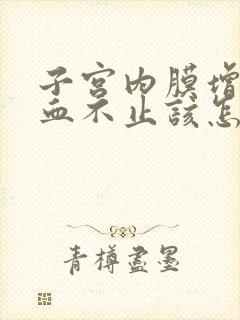 子宫内膜增
血不止该怎
青樽尽墨